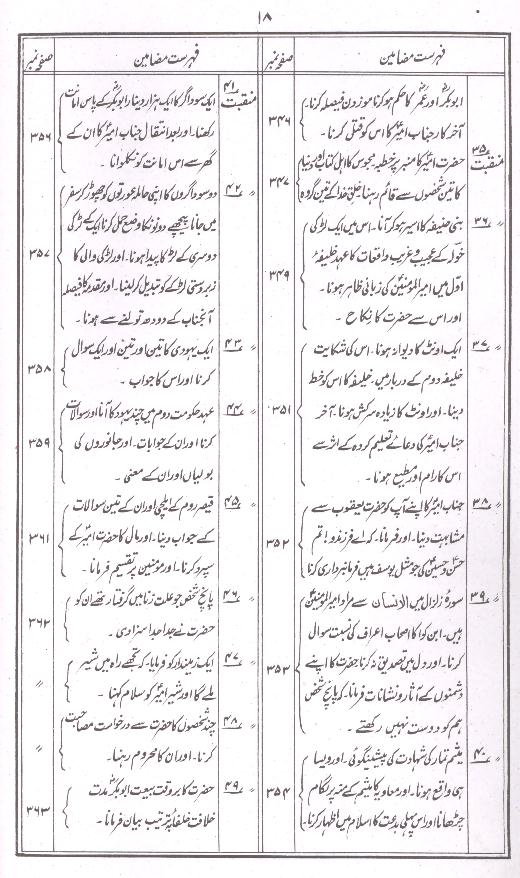 ۱۸
فہرست مضامین
صفحہ نمبر
ابوبکرؓ اور عمرؓ کا حکم ہو کرنا موزدن فیصلہ کرنا۔
آخر کار جناب امیرؑ کا اس کو قتل کرنا۔
۳۴۶
منقبت ۳۵
حضرت امیرؑ کا منبر پر خطبہ مجوس کا اہل کتاب اور دنیا
کا تین شخصوں سے قائم رہنا خلق خدا کے تین گروہ
۳۴۷
〃 ۳۶
بنی حنیفہ کا اسیر ہو کر آنا۔ اس میں ایک لڑکی
خولہ کے عجیب و غریب واقعات کا عہد خلیفۂ
اول میں امیر المومنینؑ کی زبانی ظاہر ہونا۔
اور اس سے حضرت کا نکاح۔
۳۴۹
〃 ۳۷
ایک اونٹ کا دیوانہ ہونا۔ اس کی شکایت
خلیفہ دوم کے دربار میں۔ خلیفہ کا اس کو خط
دینا۔ اور اونٹ کا زیادہ سرکش ہونا۔ آخر
جناب امیرؑ کی دعائے تعلیم کردہ کے اثر سے
اس کا رام اور مطیع ہونا۔
۳۵۱
〃 ۳۸
جناب امیرؑ کا اپنے آپ کو حضرت یعقوب سے
مشابہت دینا۔ اور فرمانا۔ کہ اے فرزندو! تم
حسنؑ و حسینؑ کی جو مثل یوسف ہیں فرمانبرداری کرنا
۳۵۲
〃 ۳۹
سورۂ زلزال میں الانسان سے مراد امیر المومنینؑ
ہیں۔ ابن کوا کا اصحاب اعراف کی نسبت سوال
کرنا۔ اور دل میں تصدیق نہ کرنا حضرت کا اپنے
دشمنوں کے آثار و نشانات فرمانا۔ کہ پانچ شخص
ہم کو دوست نہیں رکھتے۔
۳۵۳
〃 ۴۰
میثم تمار کی شہادت کی پیشینگوئی۔ اور ویسا
ہی واقع ہونا۔ اور معاویہ کا میثم کے منہ پر لگام
چڑھانا اور اس پہلی بدعت کا اسلام میں اظہار کرنا۔
۳۵۴
فہرست مضامین
صفحہ نمبر
منقبت ۴۱
ایک سوداگر کا ایک ہزار دینار ابوبکرؓ کے پاس امانت
رکھنا۔ اور بعد انتقال جناب امیرؑ کا ان کے
گھر سے اس امانت کو نکلوانا۔
۳۵۶
〃 ۴۲
دو سوداگروں کا اپنی حاملہ عورتوں کو چھوڑ کر سفر
میں جانا پیچھے دونو کا وضع حمل کرنا ایک کے لڑکی
دوسری کے لڑکا پیدا ہونا۔ اور لڑکی والی کا
زبردستی لڑکے کو تبدیل کر لینا۔ اور مقدمہ کا فیصلہ
آنجناب کے دودھ تولنے سے ہونا۔
۳۵۷
〃 ۴۳
ایک یہودی کا تین اور تین اور ایک سوال
کرنا اور اس کا جواب۔
۳۵۸
〃 ۴۴
عہد حکومت دوم میں چند یہود کا آنا اور سوالات
کرنا اور ان کے جوابات۔ اور جانوروں کی
بولیاں اور ان کے معنی۔
۳۵۹
〃 ۴۵
قیصر روم کے ایلچی اور ان کے تین سوالات
کے جواب دینا۔ اور مال کا حضرت امیرؑ کے
سپرد کرنا۔ اور مومنین پر تقسیم فرمانا۔
۳۶۱
〃 ۴۶
پانچ شخص جو علت زنا میں گرفتار تھے ان کو
حضرت نے جدا جدا سزا دی۔
۳۶۲
〃 ۴۷
ایک زمیندار کو فرمایا کہ تجھے راہ میں شیر
ملے گا اور شیر امیرؑ کو سلام کہنا۔
〃
〃 ۴۸
چند شخصوں کا حضرت سے درخواست مصاحبت
کرنا۔ اور ان کا محروم رہنا۔
〃
〃 ۴۹
حضرت کا بروقت بیعت ابوبکرؓ مدت
خلافت خلفا بترتیب بیان فرمانا۔
۳۶۳